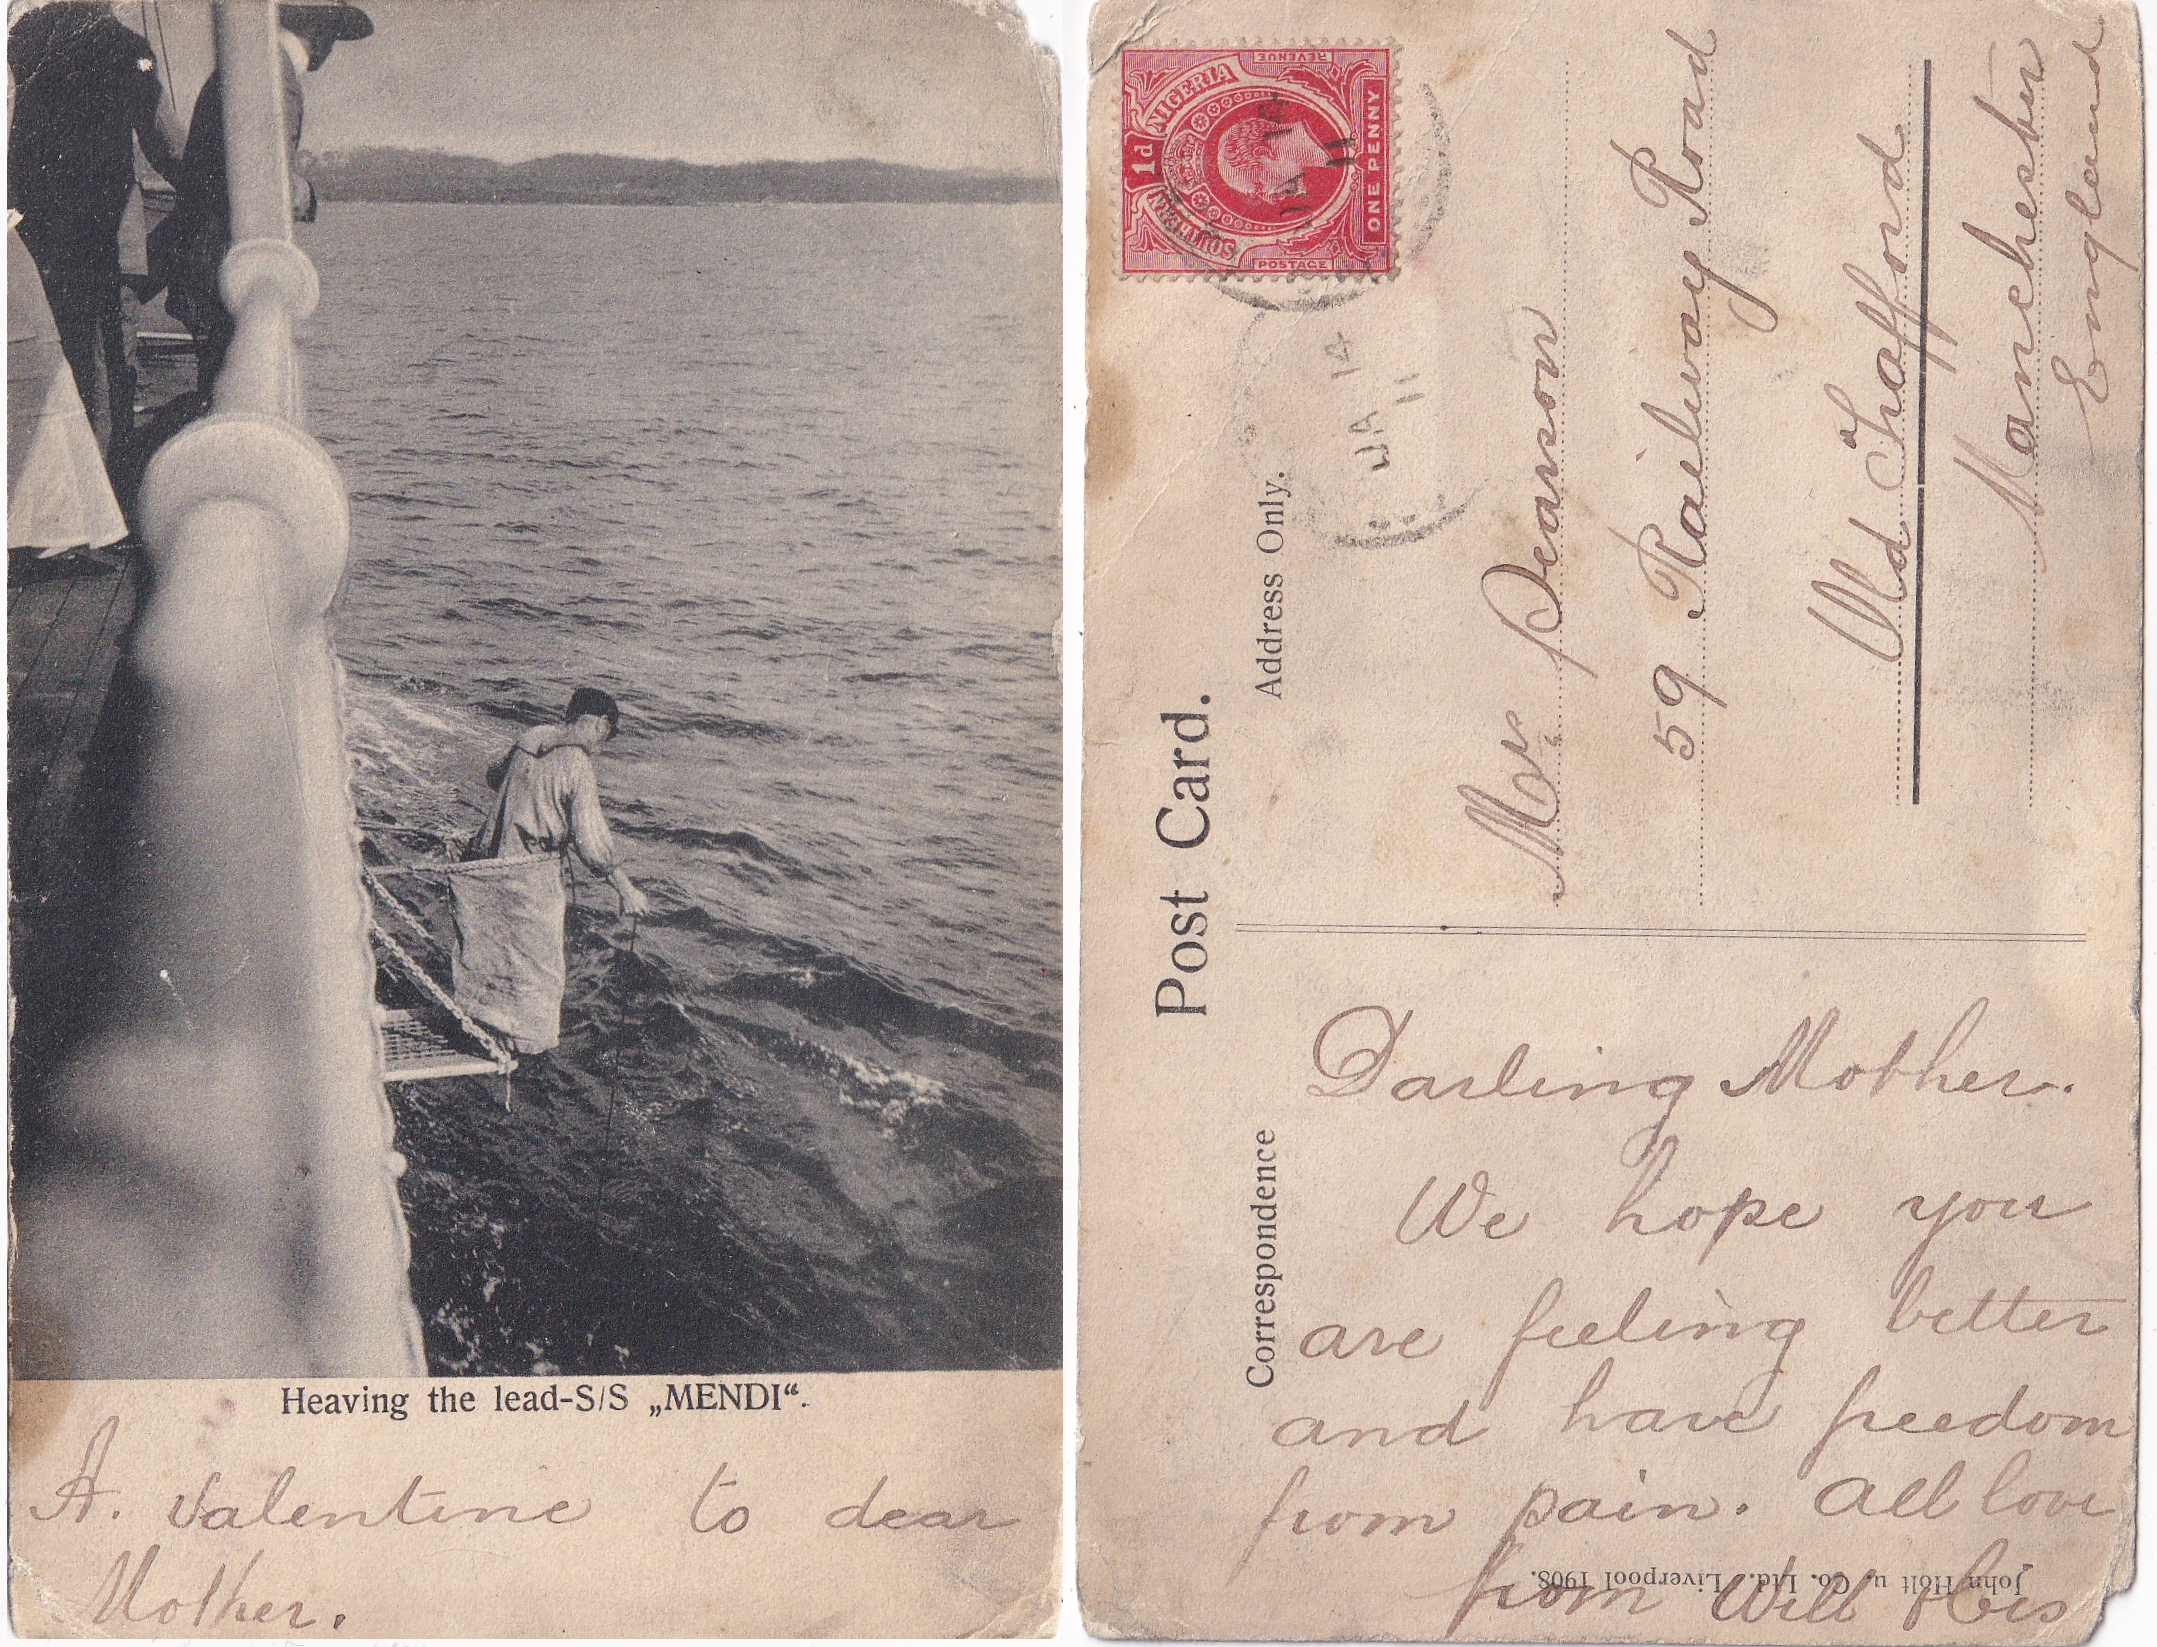 Heaving the lead-S/S „MENDI“.
A. Valentine to dear
Mother.
Post Card.
Correspondence
Address Only.
SOUTHERN NIGERIA
1d
REVENUE
POSTAGE
ONE PENNY
JA 14
11
JA 14
11
Mrs Pearson
59 Railway Road
Old Trafford
Manchester
England
Darling Mother.
We hope you
are feeling better
and have freedom
from pain. All love
from Will
John Holt u. Co. Ltd. Liverpool 1908.